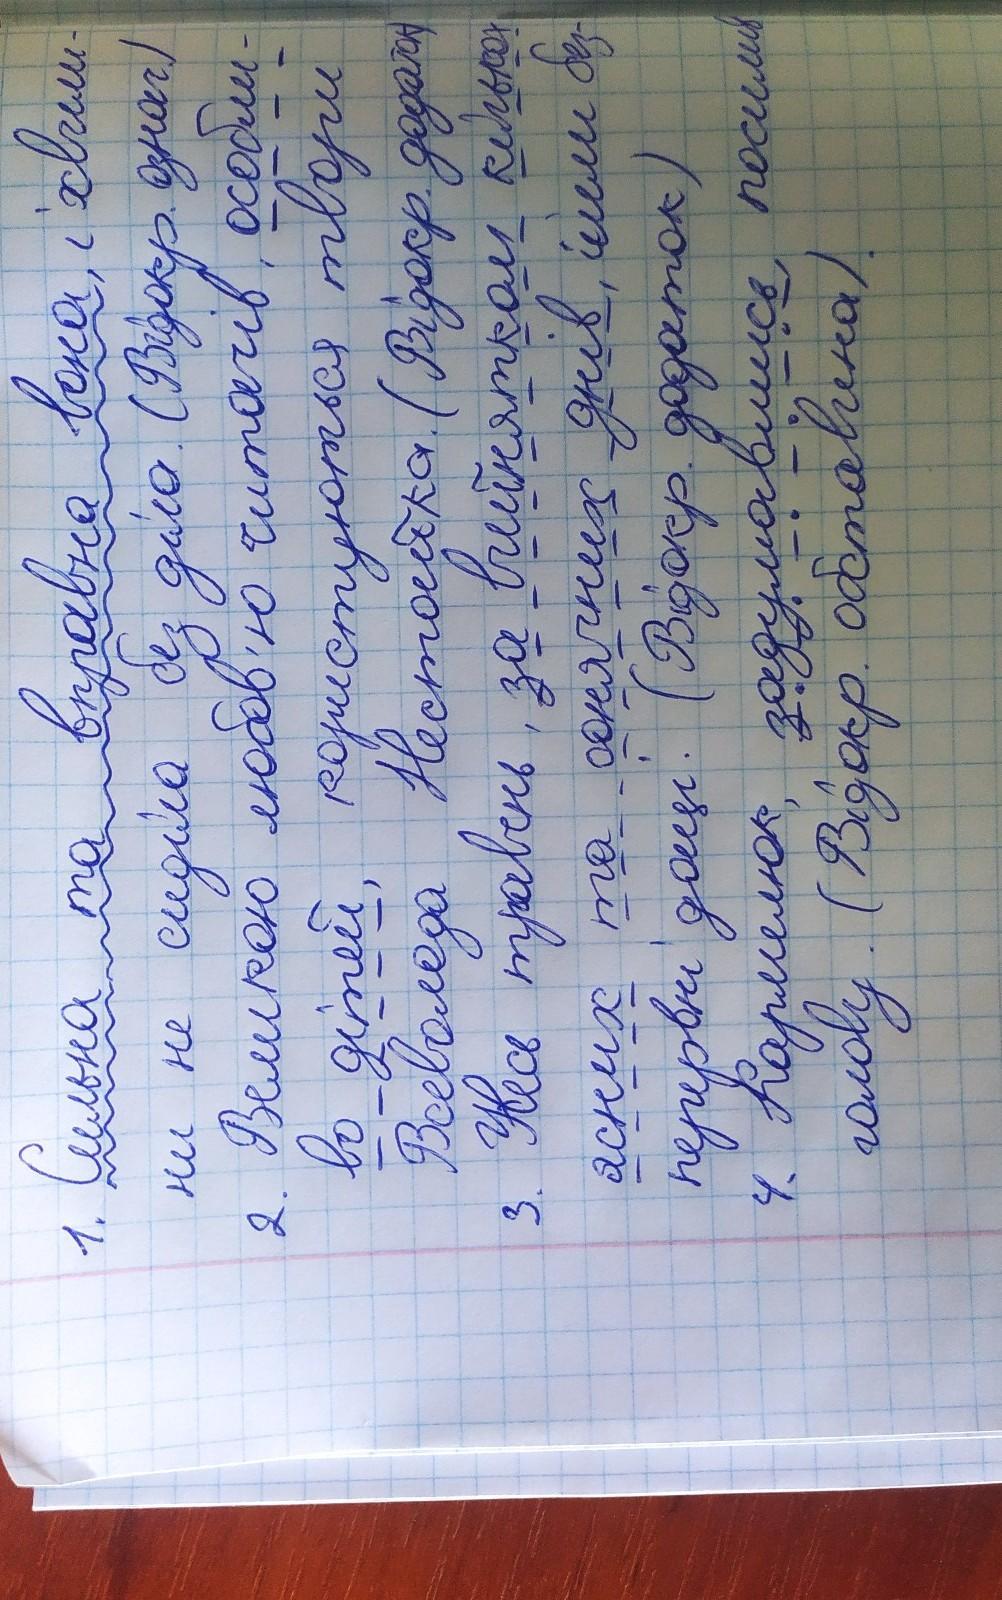 1. Сильна та вправна вона, і хвили-
ни не сиділа без діла. (Відокр. означ.)
2. Великою любов'ю читачів, особли-
во дітей, користуються твори
Всеволода Нестайка. (Відокр. додаток
3. Увесь травень, за вийнятком кількох
ясних та сонячних днів, ішли без-
перервні дощі. (Відокр. додаток)
4. Кармелюк, задумавшись, посилив
голову. (Відокр. обставина).